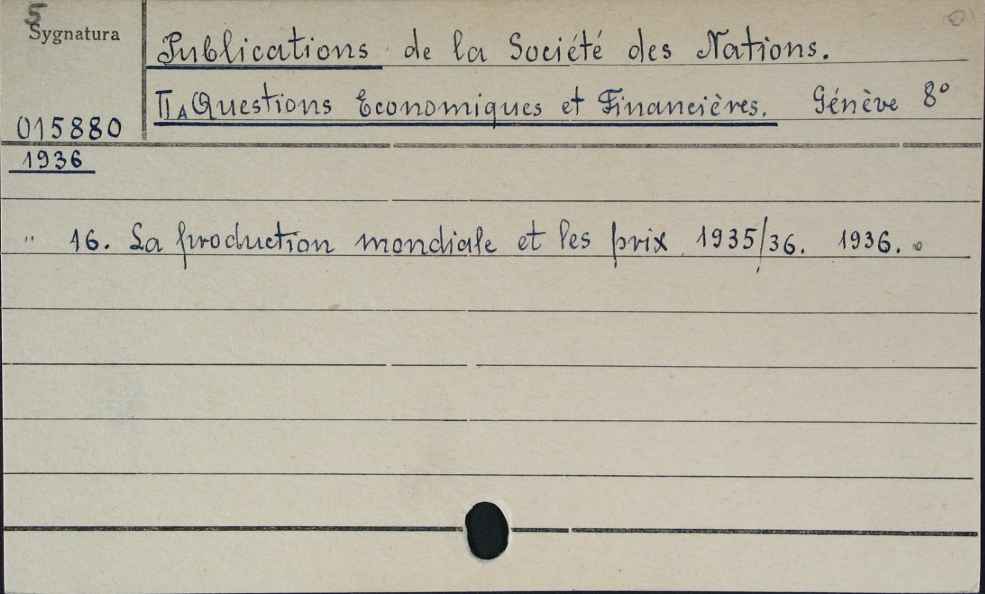 5
Sygnatura
015880
Publications de la Société des Nations.
II A Questions Economiques et Financières. Génève 8°
1936
" 16. La production mondiale et les prix 1935/36. 1936.